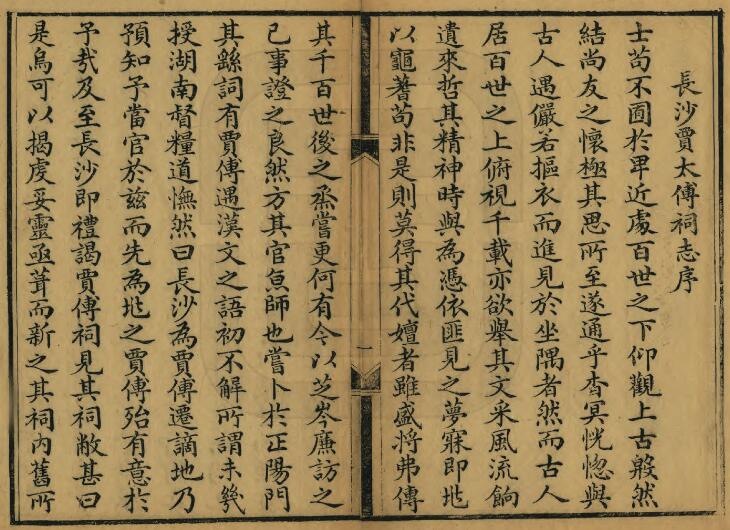 長沙賈太傅祠志序
士苟不囿於卑近處百世之下仰觀上古毅然
結尚友之懷極其思所至遂通乎杳冥恍惚與
古人遇儼若摳衣而進見於坐隅者然而古人
居百世之上俯視千載亦欲舉其文采風流餉
遺來哲其精神時與為憑依匪見之夢寐即訛
以龜蓍苟非是則莫得其代嬗者雖盛將弗傳
其千百世後之烝嘗更何有今以芝岑廉訪之
已事證之良然方其官京師也嘗卜於正陽門
其繇詞有賈傅遇漢文之語初不解所謂未幾
授湖南督糧道憮然曰長沙為賈傅遷謫地乃
預知予當官於茲而先為兆之賈傅殆有意於
予哉及至長沙即禮謁賈傅祠見其祠敝甚曰
是烏可以揭虔妥靈亟葺而新之其祠內舊所
一